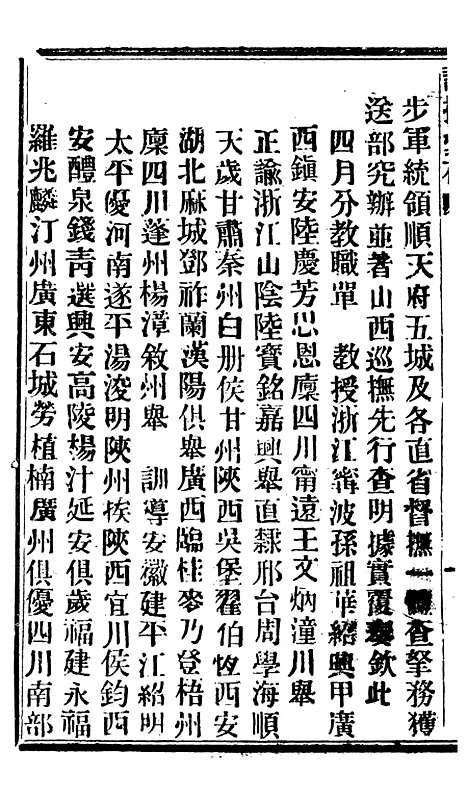 步軍統領順天府五城及各直省督撫一體查拏務獲
送部究辦並著山西巡撫先行查明據實覆奏欽此
四月分教職單　教授浙江甯波孫祖華紹興甲廣
西鎮安陸慶芳思恩廩四川甯遠王文炳潼川舉
正諭浙江山陰陸寶銘嘉興舉直隸邢台周學海順
天歲甘肅秦州白册侯甘州陝西吳堡翟伯恆西安
湖北麻城鄧祚蘭漢陽俱舉廣西臨桂麥乃登梧州
廩四川蓬州楊漳敘州舉　訓導安徽建平江紹明
太平優河南遂平湯浚明陝州挨陝西宜川侯鈞西
安醴泉錢靑選興安高陵楊汁延安俱歲福建永福
羅兆麟汀州廣東石城勞植楠廣州俱優四川南部